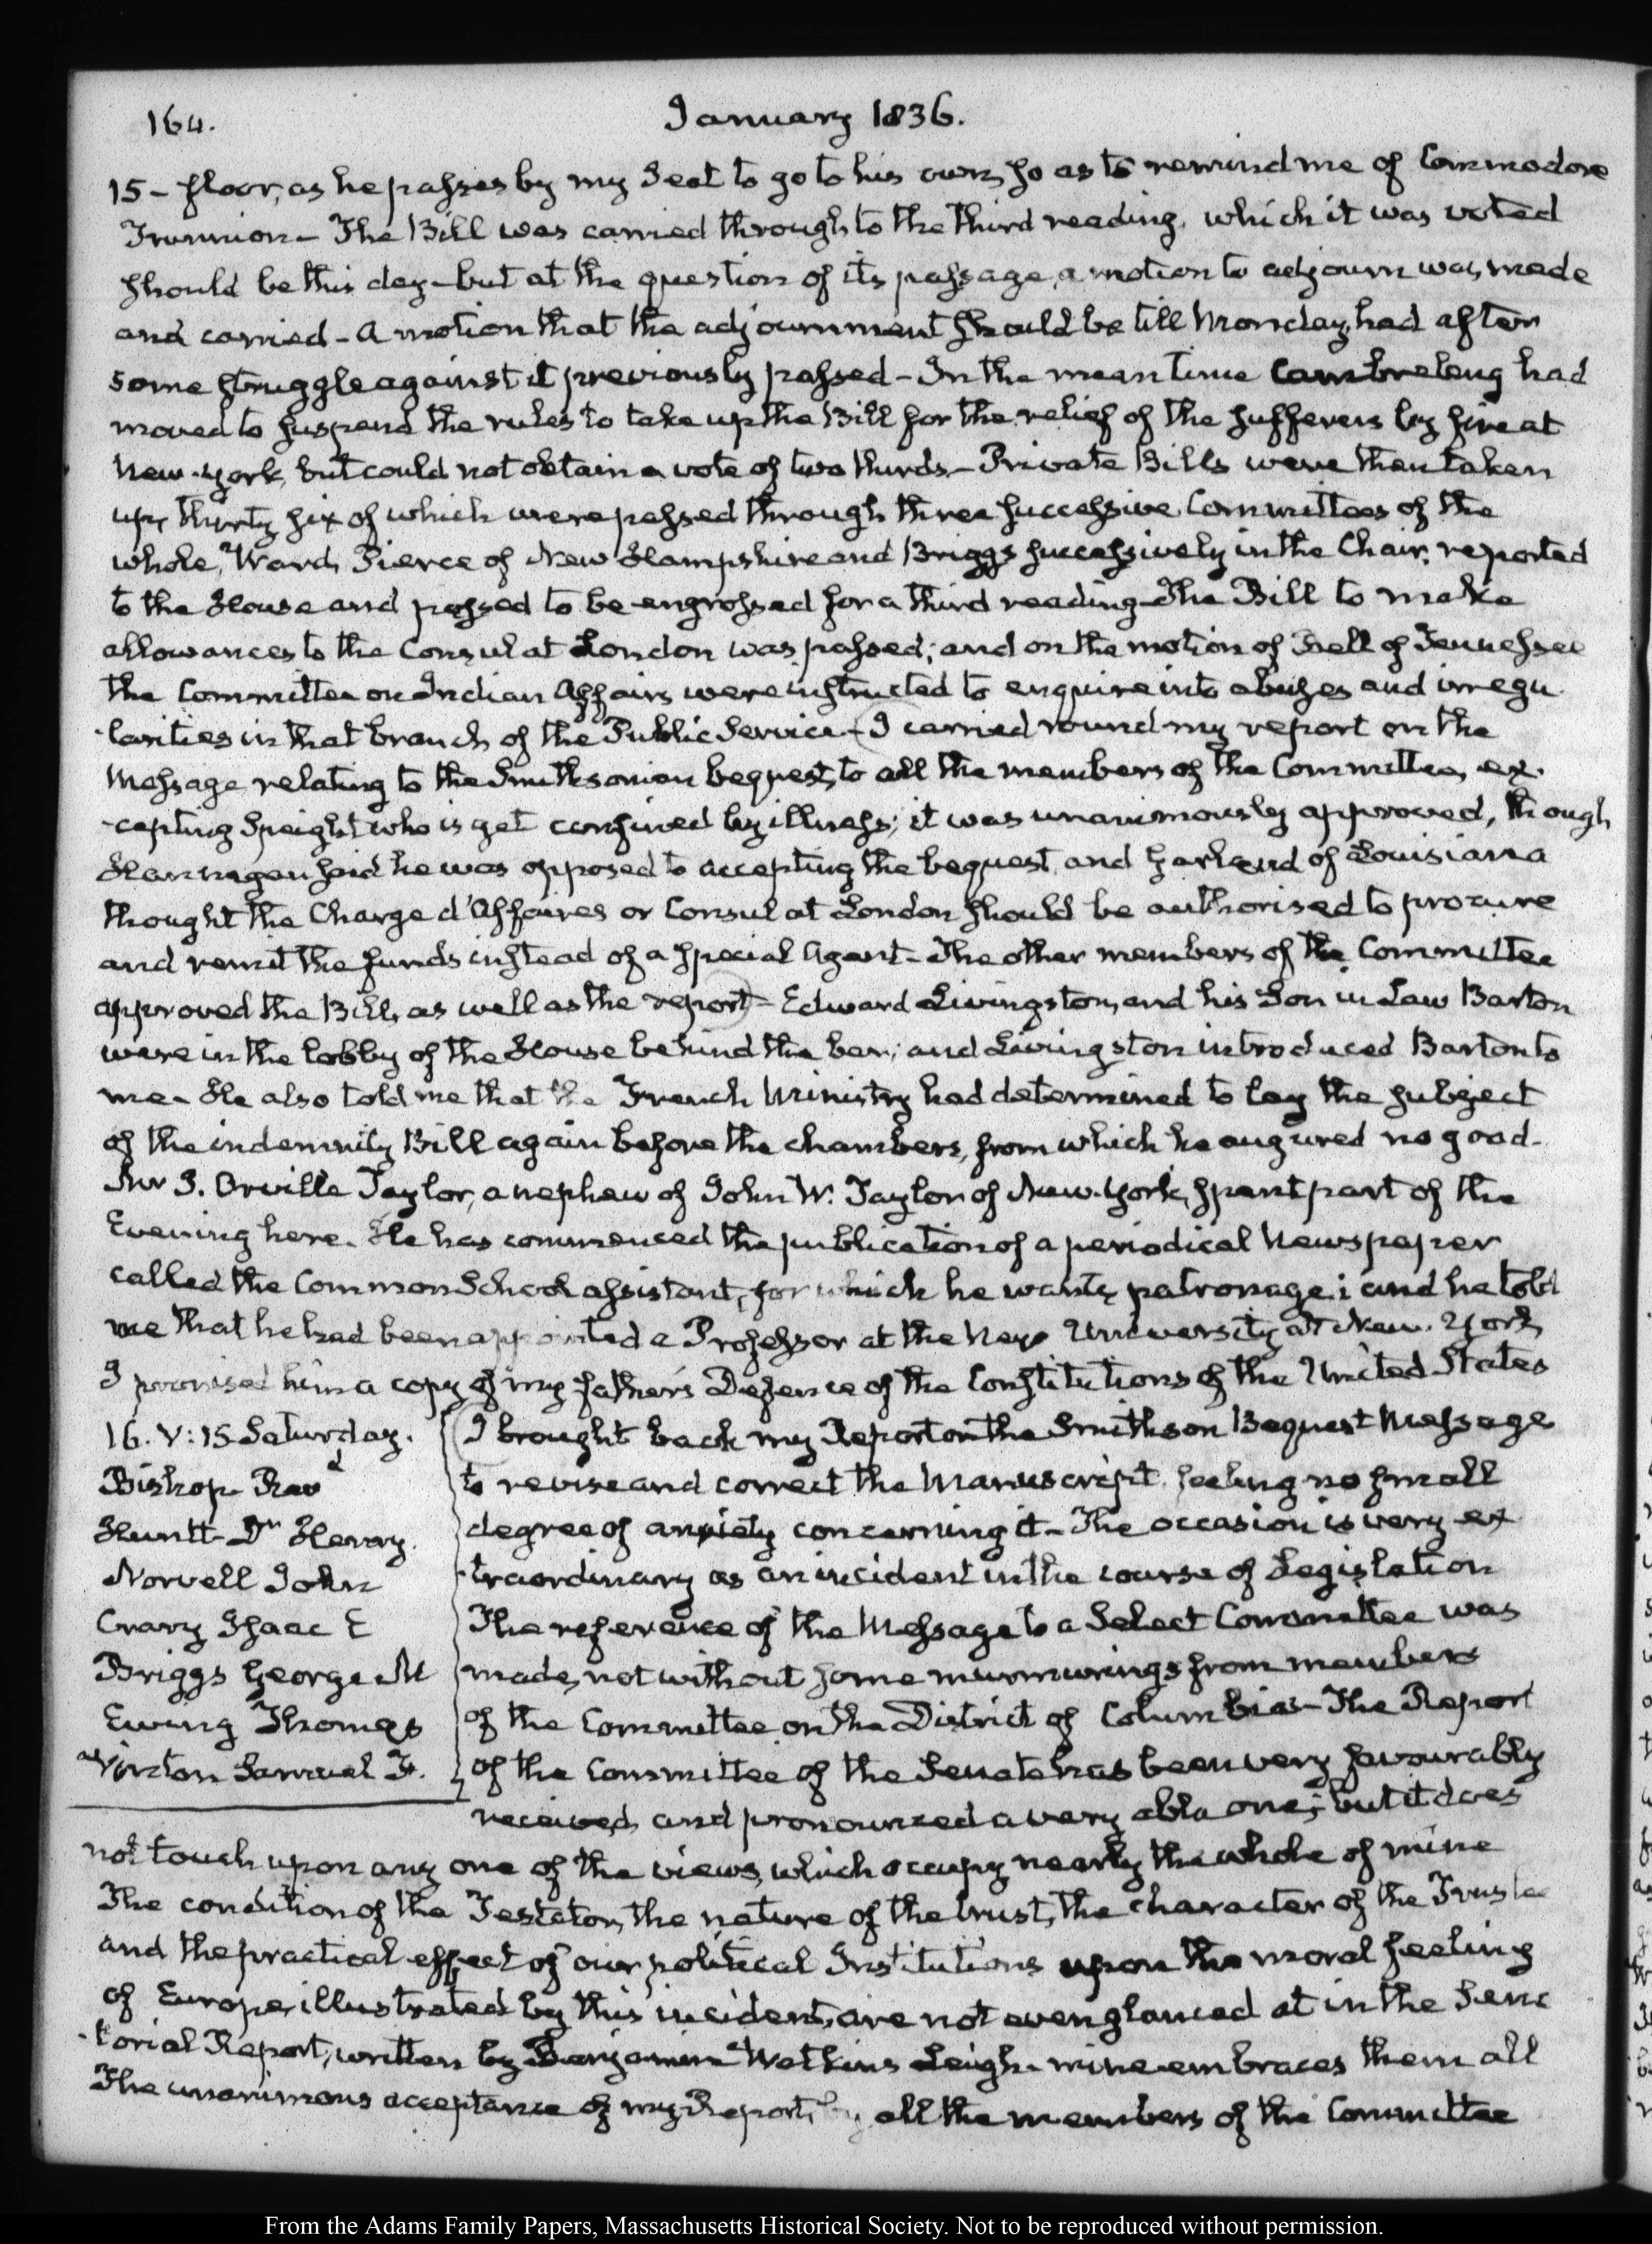 164.
January 1836.
15- floor, as he passes by my Seat to go to his own, so as to remind me of Commodore
Trunnion- The Bill was carried through to the third reading, which it was voted
should be this day- but at the question of its passage, a motion to adjourn was made
and carried- A motion that the adjournment should be till Monday, had after
some struggle against it previously passed- In the mean time Cambreleng had
moved to suspend the rules to take up the Bill for the relief of the sufferers by fire at
New-York, but could not obtain a vote of two thirds- Private Bills were then taken
up, thirty six of which were passed through three successive Committees of the
whole, Ward, Pierce of New Hampshire and Briggs successively in the Chair, reported
to the House and passed to be engrossed for a third reading- The Bill to make
allowances to the Consul at London was passed; and on the motion of Bell of Tennessee
the Committee on Indian Affairs were instructed to enquire into abuses and irregu
-larities in that branch of the Public Service- I carried round my report on the
Message relating to the Smithsonian bequest, to all the members of the Committee, ex-
-cepting Speight who is yet confined by illness; it was unanimously approved, though
Hannegan said he was opposed to accepting the bequest, and Garland of Louisiana
thought the Charge d'Affaires or Consul at London should be authorised to procure
and remit the funds instead of a special Agent- The other members of the Committee
approved the Bill, as well as the report- Edward Livingston, and his Son in Law Barton
were in the lobby of the House behind the bar; and Livingston introduced Barton to
me- He also told me that the French Ministry had determined to lay the subject
of the indemnity Bill again before the chambers, from which he augured no good-
Mr J. Orville Taylor, a nephew of John W. Taylor of New-York, spent part of the
Evening here. He has commenced the publication of a periodical Newspaper
called the Common School assistant, for which he wants patronage; and he told
me that he had been appointed a Professor at the New University at New-York
I promised him a copy of my father's Defence of the Constitutions of the United States
16. V:15 Saturday.
Bishop Revd
Huntt- Dr Henry.
Norvell John
Crary Isaac E
Briggs George N
Ewing Thomas
Vinton Samuel F.
I brought back my Report on the Smithson Bequest Message
to revise and correct the Manuscript, feeling no small
degree of anxiety concerning it- The occasion is very ex
-traordinary as an incident in the course of Legislation
The reference of the Message to a Select Committee was
made, not without some murmurings from members
of the Committee on the District of Columbia- The Report
of the Committee of the Senate has been very favourably
received, and pronounced a very able one; but it does
not touch upon any one of the views, which occupy nearly the whole of mine
The condition of the Testator, the nature of the trust, the character of the Trustee
and the practical effect of our political Institutions upon the moral feeling
of Europe, illustrated by this incident, are not even glanced at in the Sena
-torial Report, written by Benjamin Watkins Leigh- mine embraces them all
The unanimous acceptance of my Report, by all the members of the Committee
From the Adams Family Papers, Massachusetts Historical Society. Not to be reproduced without permission.